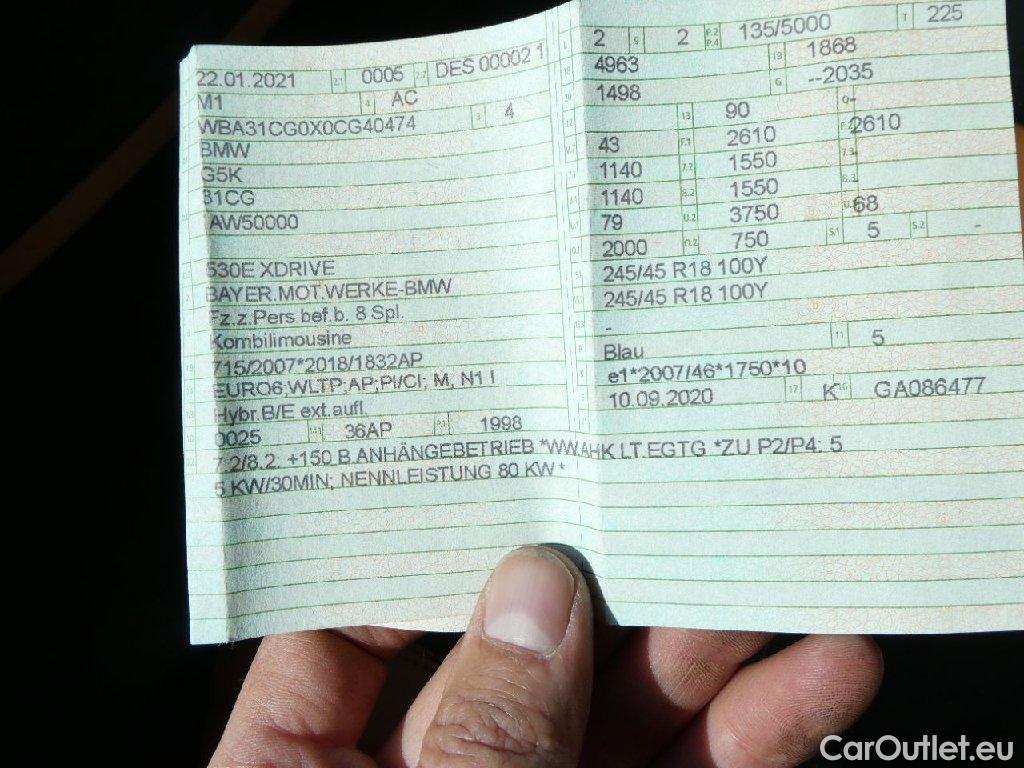 22.01.2021 2.1 0005 2.2 DES 00002 1
M1 4 AC
WBA31CG0X0CG40474 3 4
BMW
G5K
31CG
AW50000
530E XDRIVE
BAYER.MOT.WERKE-BMW
Fz.z.Pers.bef.b. 8 Spl.
Kombilimousine
715/2007*2018/1832AP
EURO6;WLTP;AP;PI/CI; M, N1 I
Hybr.B/E ext.aufl.
0025 14.1 36AP P.1 1998
7.2/8.2: +150 B.ANHÄNGEBETRIEB *WW.AHK LT.EGTG *ZU P2/P4: 5
5 KW/30MIN; NENNLEISTUNG 80 KW *
L 2 9 2 P.2 P.4 135/5000 T 225
18 4963 19 1868
20 1498 G --2035
12 13 90 Q -
43 F.1 2610 F.2 2610
1140 7.2 1550 7.3 -
1140 8.2 1550 8.3
79 U.2 3750 U.3 68
2000 D.2 750 S.1 5 S.2 -
245/45 R18 100Y
245/45 R18 100Y
-
Blau 11 5
e1*2007/46*1750*10
10.09.2020 17 K 16 GA086477
CarOutlet.eu